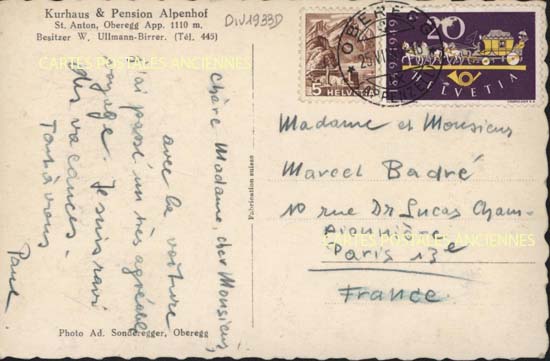 Kurhaus & Pension Alpenhof
St. Anton, Oberegg App. 1110 m.
Besitzer W. Ullmann-Birrer. (Tél. 445)
DIV1933D
OBEREGG
(APPENZELL)
5
HELVETIA
20
1849-1949
HELVETIA
CARTES POSTALES ANCIENNES
Chère Madame, cher Monsieur,
avec la voiture
j'ai passé un très agréable
voyage. Je suis ravi
des vacances.
Tout à vous
Paul
Fabrication suisse
Madame et Monsieur
Marcel Badré
10 rue Dr Lucas Cham-
pionnière
CARTES POSTALES ANCIENNES
Paris 13e
France
Photo Ad. Sonderegger, Oberegg